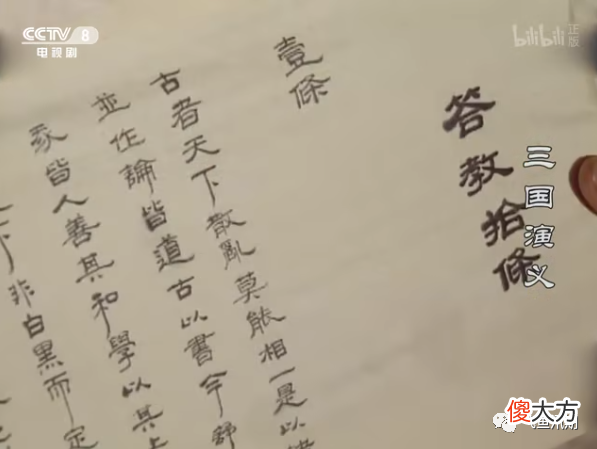 CCTV 8
电视剧
bilibili 正版
答教拾條
三国演义
壹條
古者天下散亂莫能相一是以
並作論皆道古以書今舒
皆人善其和學以其上
下非白黑而定
傻大方